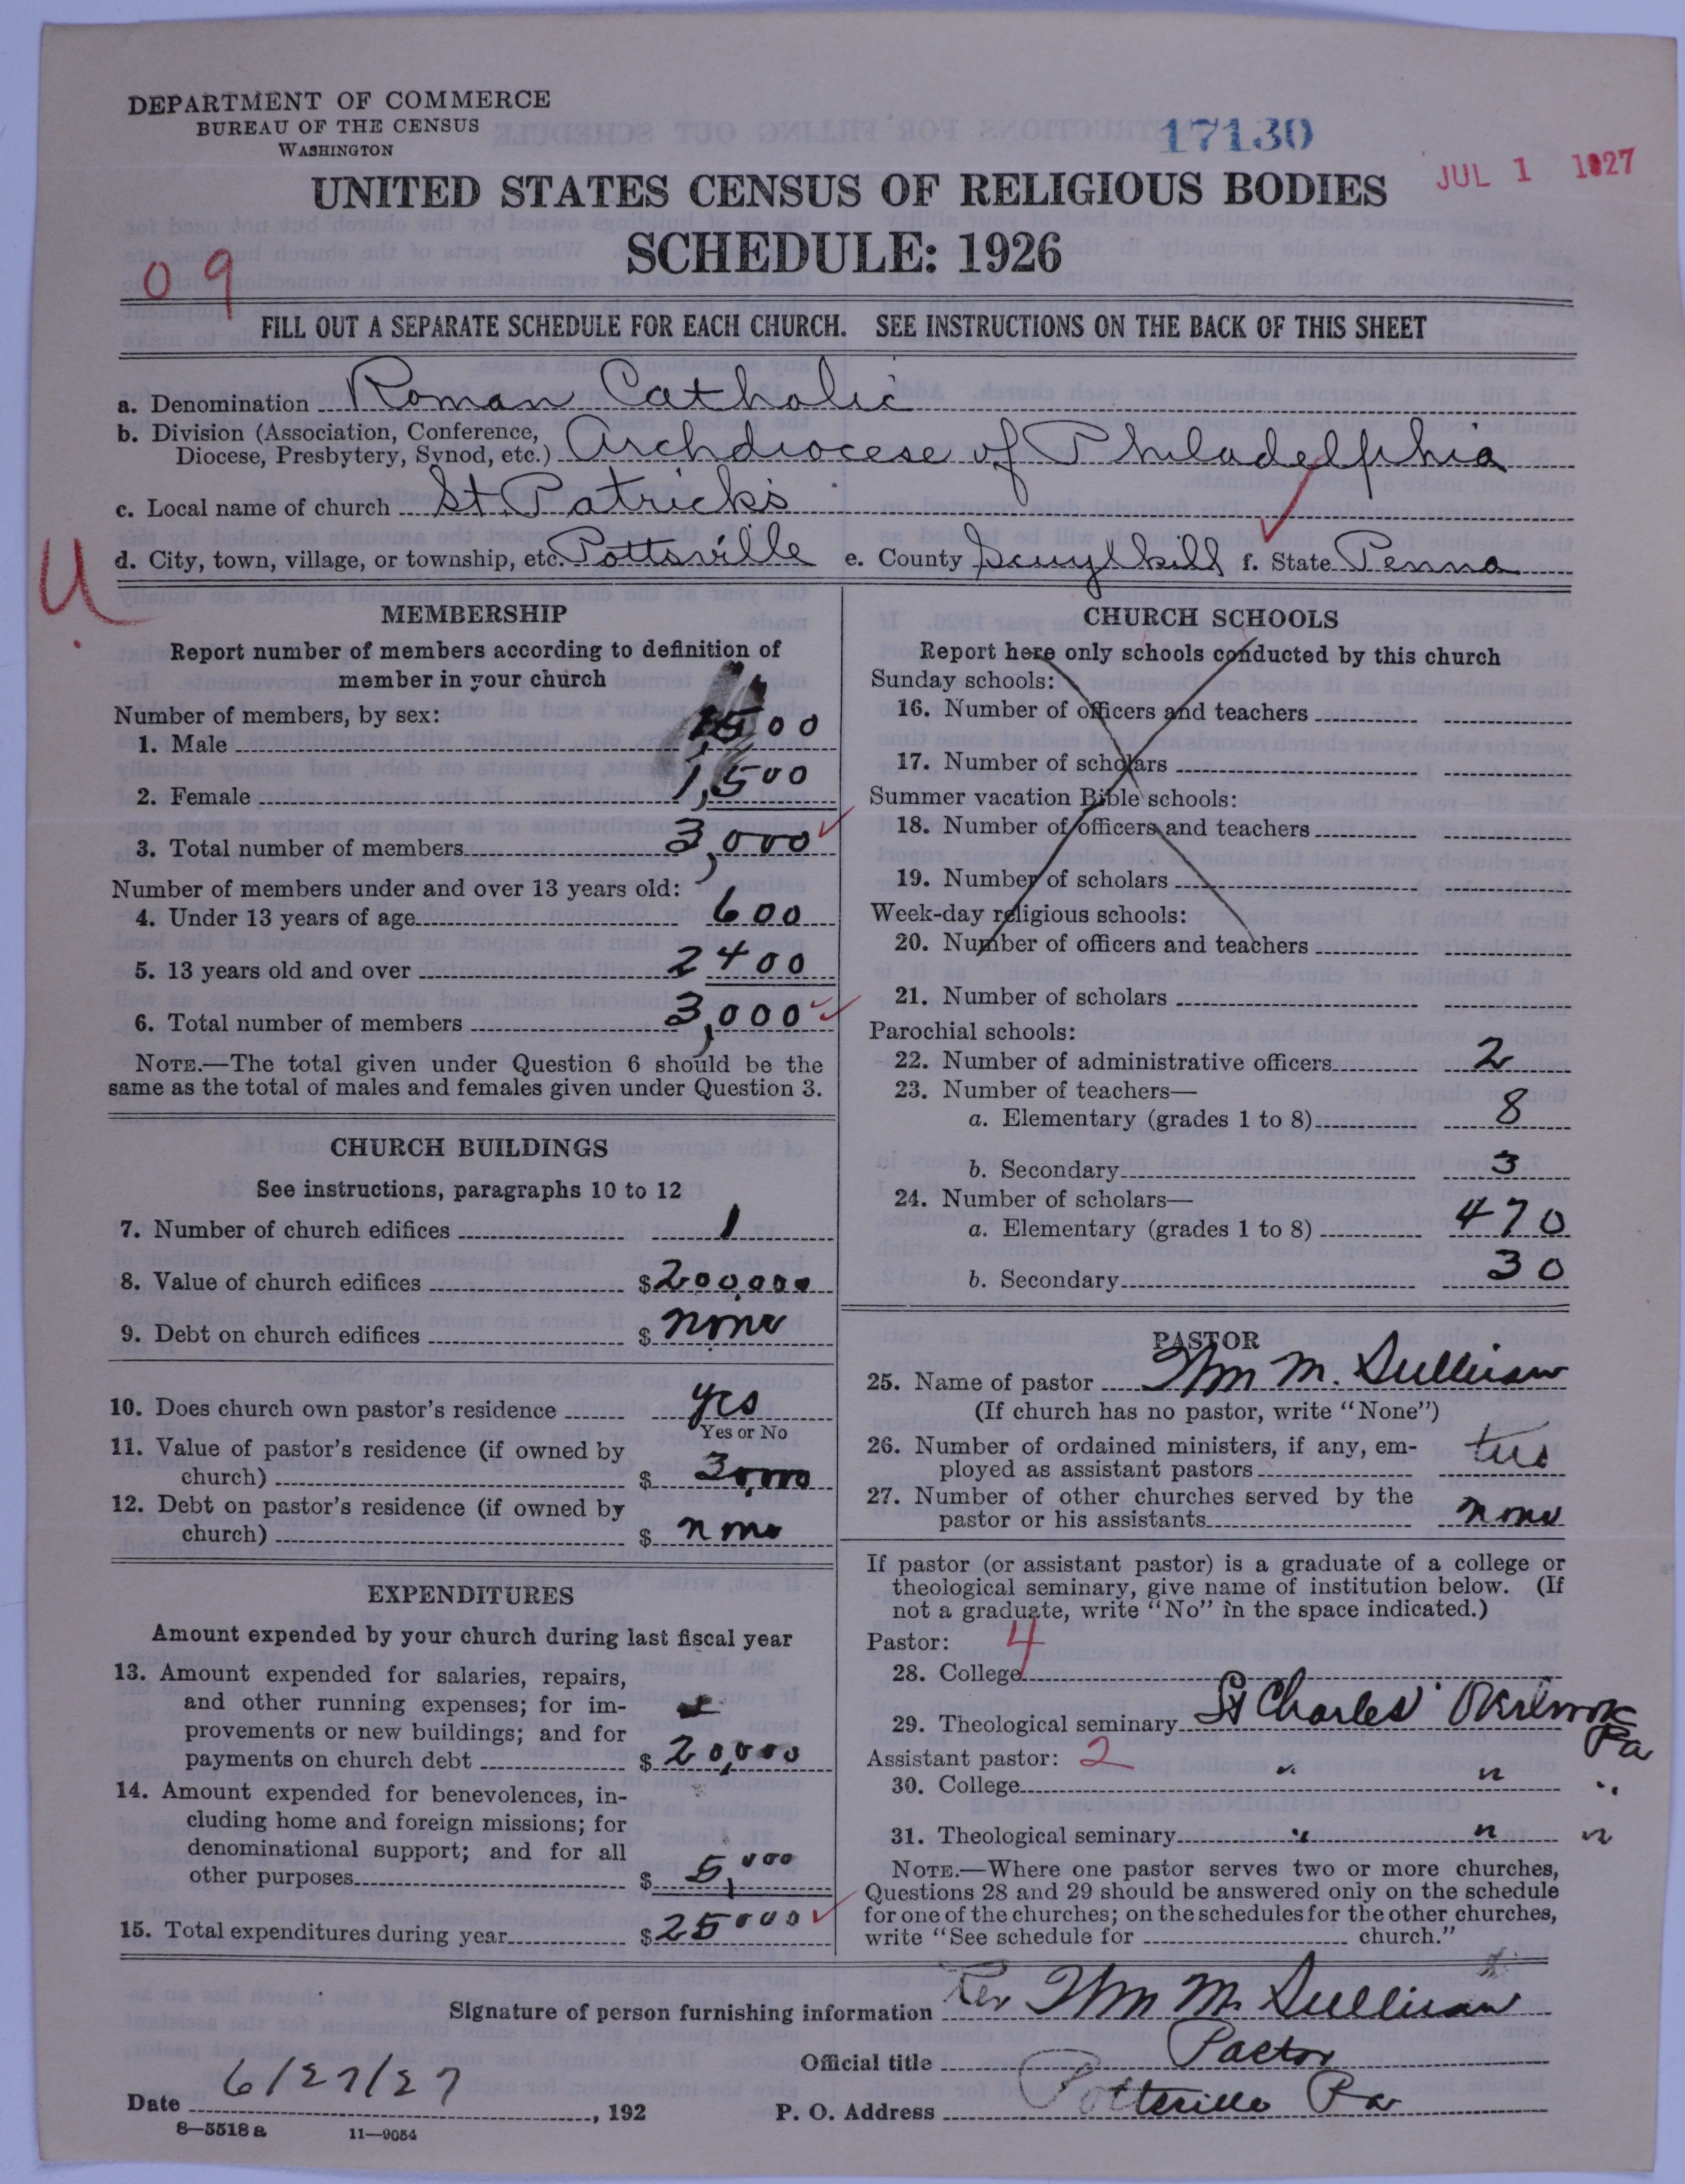 DEPARTMENT OF COMMERCE
BUREAU OF THE CENSUS
WASHINGTON
17130
JUL 1 1927
UNITED STATES CENSUS OF RELIGIOUS BODIES
SCHEDULE: 1926
09
FILL OUT A SEPARATE SCHEDULE FOR EACH CHURCH. SEE INSTRUCTIONS ON THE BACK OF THIS SHEET
a. Denomination Roman Catholic
b. Division (Association, Conference, Diocese, Presbytery, Synod, etc.) Archdiocese of Philadelphia
c. Local name of church St. Patrick's
d. City, town, village, or township, etc. Pottsville e. County Scuylkill f. State Penna
U
MEMBERSHIP
Report number of members according to definition of
member in your church
Number of members, by sex:
1. Male 1500
2. Female 1,500
3. Total number of members 3,000
Number of members under and over 13 years old:
4. Under 13 years of age 600
5. 13 years old and over 2400
6. Total number of members 3,000
NOTE.—The total given under Question 6 should be the
same as the total of males and females given under Question 3.
CHURCH BUILDINGS
See instructions, paragraphs 10 to 12
7. Number of church edifices 1
8. Value of church edifices $200,000
9. Debt on church edifices $ none
10. Does church own pastor's residence yes
Yes or No
11. Value of pastor's residence (if owned by
church) $ 30,000
12. Debt on pastor's residence (if owned by
church) $ none
EXPENDITURES
Amount expended by your church during last fiscal year
13. Amount expended for salaries, repairs,
and other running expenses; for im-
provements or new buildings; and for
payments on church debt $ 20,000
14. Amount expended for benevolences, in-
cluding home and foreign missions; for
denominational support; and for all
other purposes $ 5,000
15. Total expenditures during year $ 25000
CHURCH SCHOOLS
Report here only schools conducted by this church
Sunday schools:
16. Number of officers and teachers
17. Number of scholars
Summer vacation Bible schools:
18. Number of officers and teachers
19. Number of scholars
Week-day religious schools:
20. Number of officers and teachers
21. Number of scholars
Parochial schools:
22. Number of administrative officers 2
23. Number of teachers—
a. Elementary (grades 1 to 8) 8
b. Secondary 3
24. Number of scholars—
a. Elementary (grades 1 to 8) 470
b. Secondary 30
PASTOR
25. Name of pastor Wm M. Sullivan
(If church has no pastor, write "None")
26. Number of ordained ministers, if any, em-
ployed as assistant pastors two
27. Number of other churches served by the
pastor or his assistants none
If pastor (or assistant pastor) is a graduate of a college or
theological seminary, give name of institution below. (If
not a graduate, write "No" in the space indicated.)
Pastor: 4
28. College
29. Theological seminary St Charles' Overbrook Pa
Assistant pastor: 2
30. College " " "
31. Theological seminary " " "
NOTE.—Where one pastor serves two or more churches,
Questions 28 and 29 should be answered only on the schedule
for one of the churches; on the schedules for the other churches,
write "See schedule for church."
Signature of person furnishing information Rev Wm M. Sullivan
Official title Pastor
Date 6/27/27, 192 P. O. Address Pottsville Pa
8—5518 a 11—9054